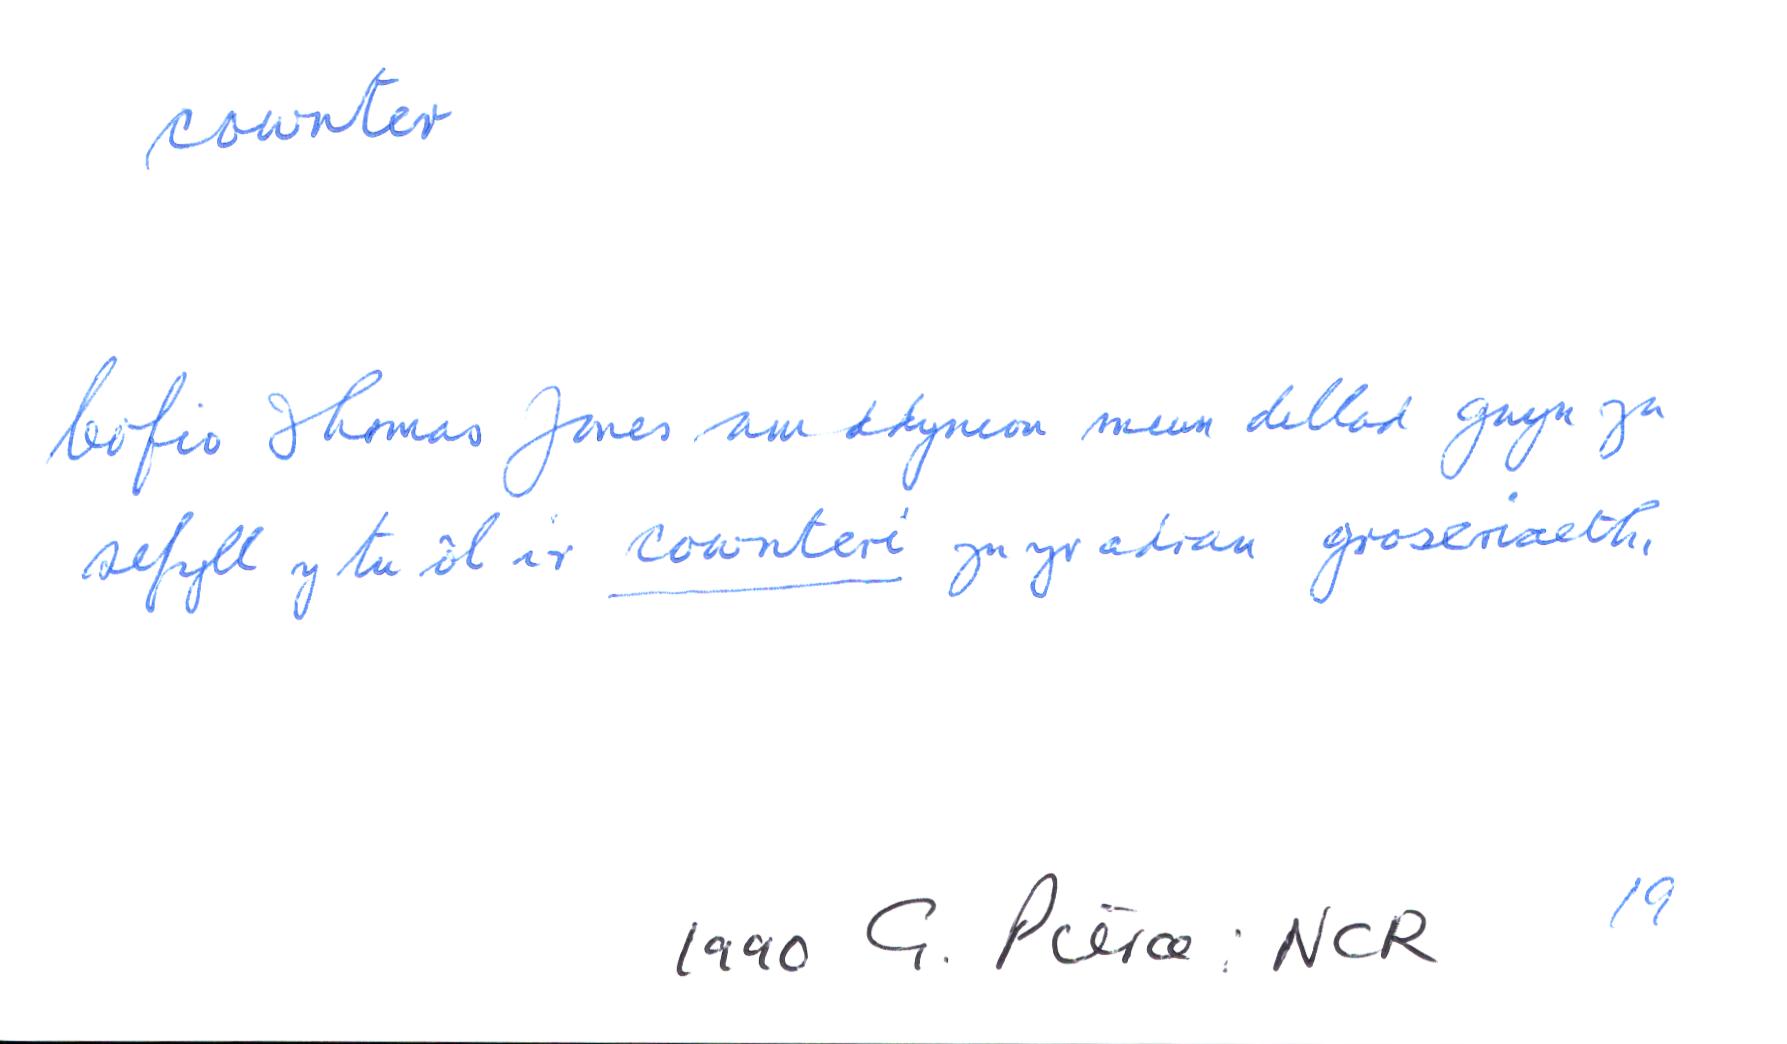 cownter
Cofio Thomas Jones am ddynion mewn dillad gwyn yn
sefyll y tu ôl i'r cownteri yn yr adran groseriaeth.
1990 G. Pierce: NCR 19